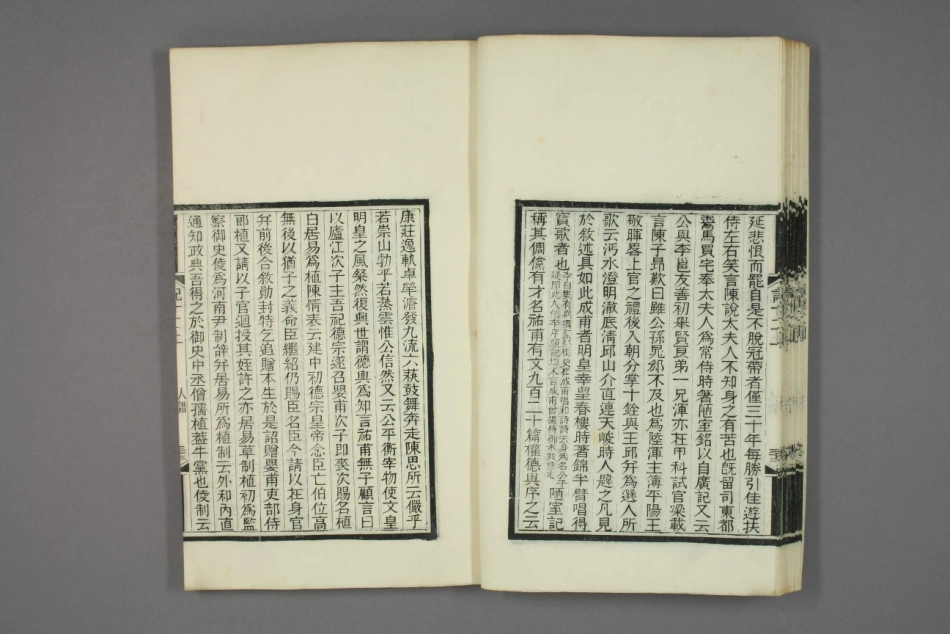 延悲恨而罷自是不脫冠帶者僅三十年每勝引佳遊扶
侍左右笑言陳說太夫人不知身之有苦也旣留司東都
鬻馬買宅奉太夫人爲常侍時著陋室銘以自廣記又云
公與李邕友善初舉賢良弟一兄渾亦在甲科試官梁載
言陳子昂歎曰雖公孫晁郤不及也爲陸渾主薄平陽王
敬暉畧上官之禮後入朝分掌十銓與王邱分爲遜人所
歌云沔水澄明澈底淸邱山介直連天峻時人辟之凡見
於敘述具如此成甫者明皇幸望春樓時著錦半臂唱得
寶歌者也 陋室記
稱其倜儻有才名祐甫有文九百二十篇權德輿序之云
康莊逸軌卓犖濬發九流六蓺鼓舞奔走陳思所云儼乎
若崇山勃乎若蒸雲惟公信然又云公平衡宰物使文皇
明皇之風粲然復興世謂德輿爲知言祐甫無子顧言曰
以廬江次子主吾祀德宗遂召嬰甫次子卽喪次賜名植
白居易爲植陳情表云建中初德宗皇帝念臣亡伯位高
無後以猶子之義命臣繼紹仍賜臣名臣今請以在身官
幷前後合敘勛封特乞追贈本生於是詔贈嬰甫吏部侍
郎植又請以子官迴授其姪許之亦居易草制植初爲監
察御史倰爲河南尹制詳幷居易所爲植制云外和內直
通知政典吾得之於御史中丞僧孺植葢牛黨也倰制云